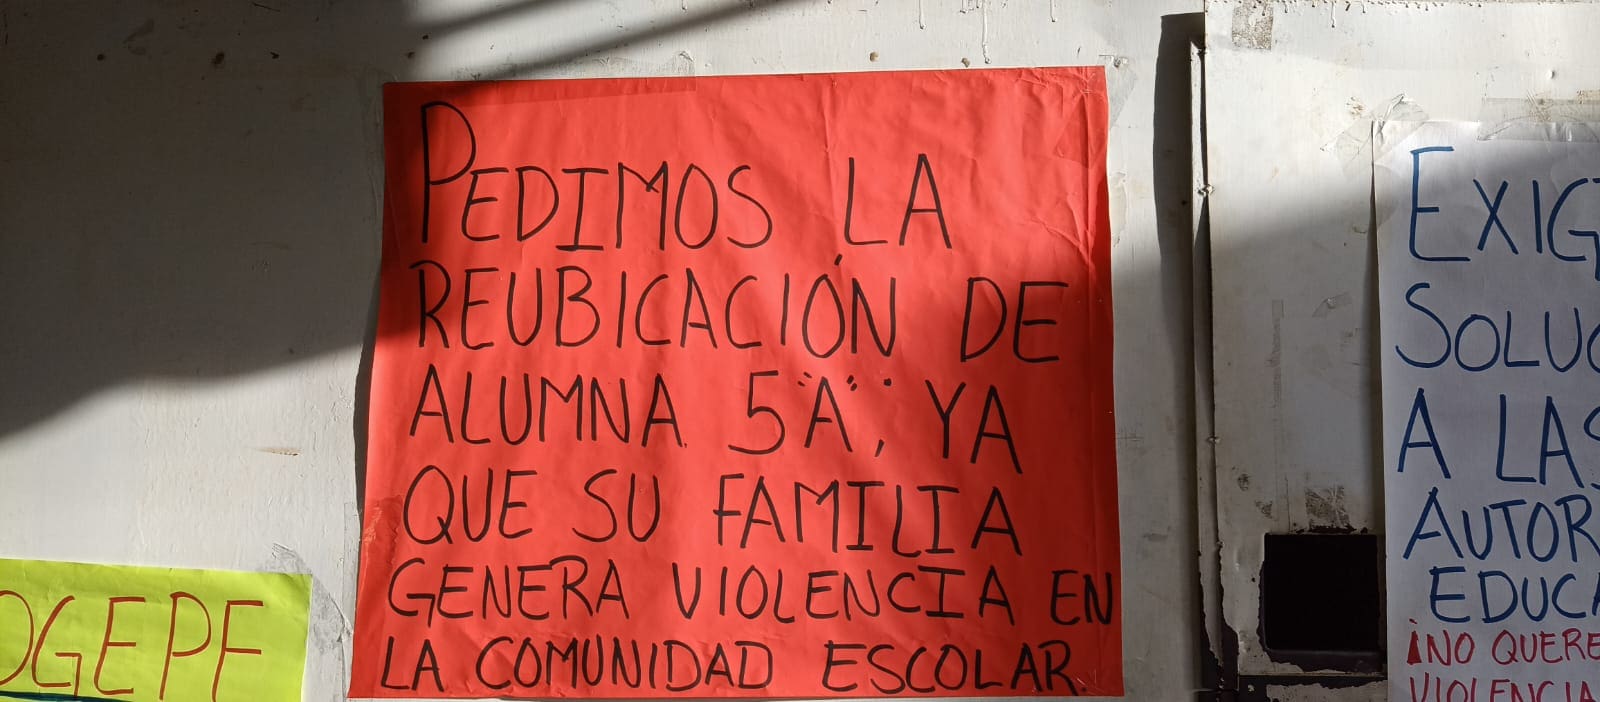 PEDIMOS LA
REUBICACIÓN DE
ALUMNA 5"A", YA
QUE SU FAMILIA
GENERA VIOLENCIA EN
LA COMUNIDAD ESCOLAR.
OGEPE
EXIG
SOLUC
A LAS
AUTOR
EDUCA
¡NO QUERE
VIOLENCIA